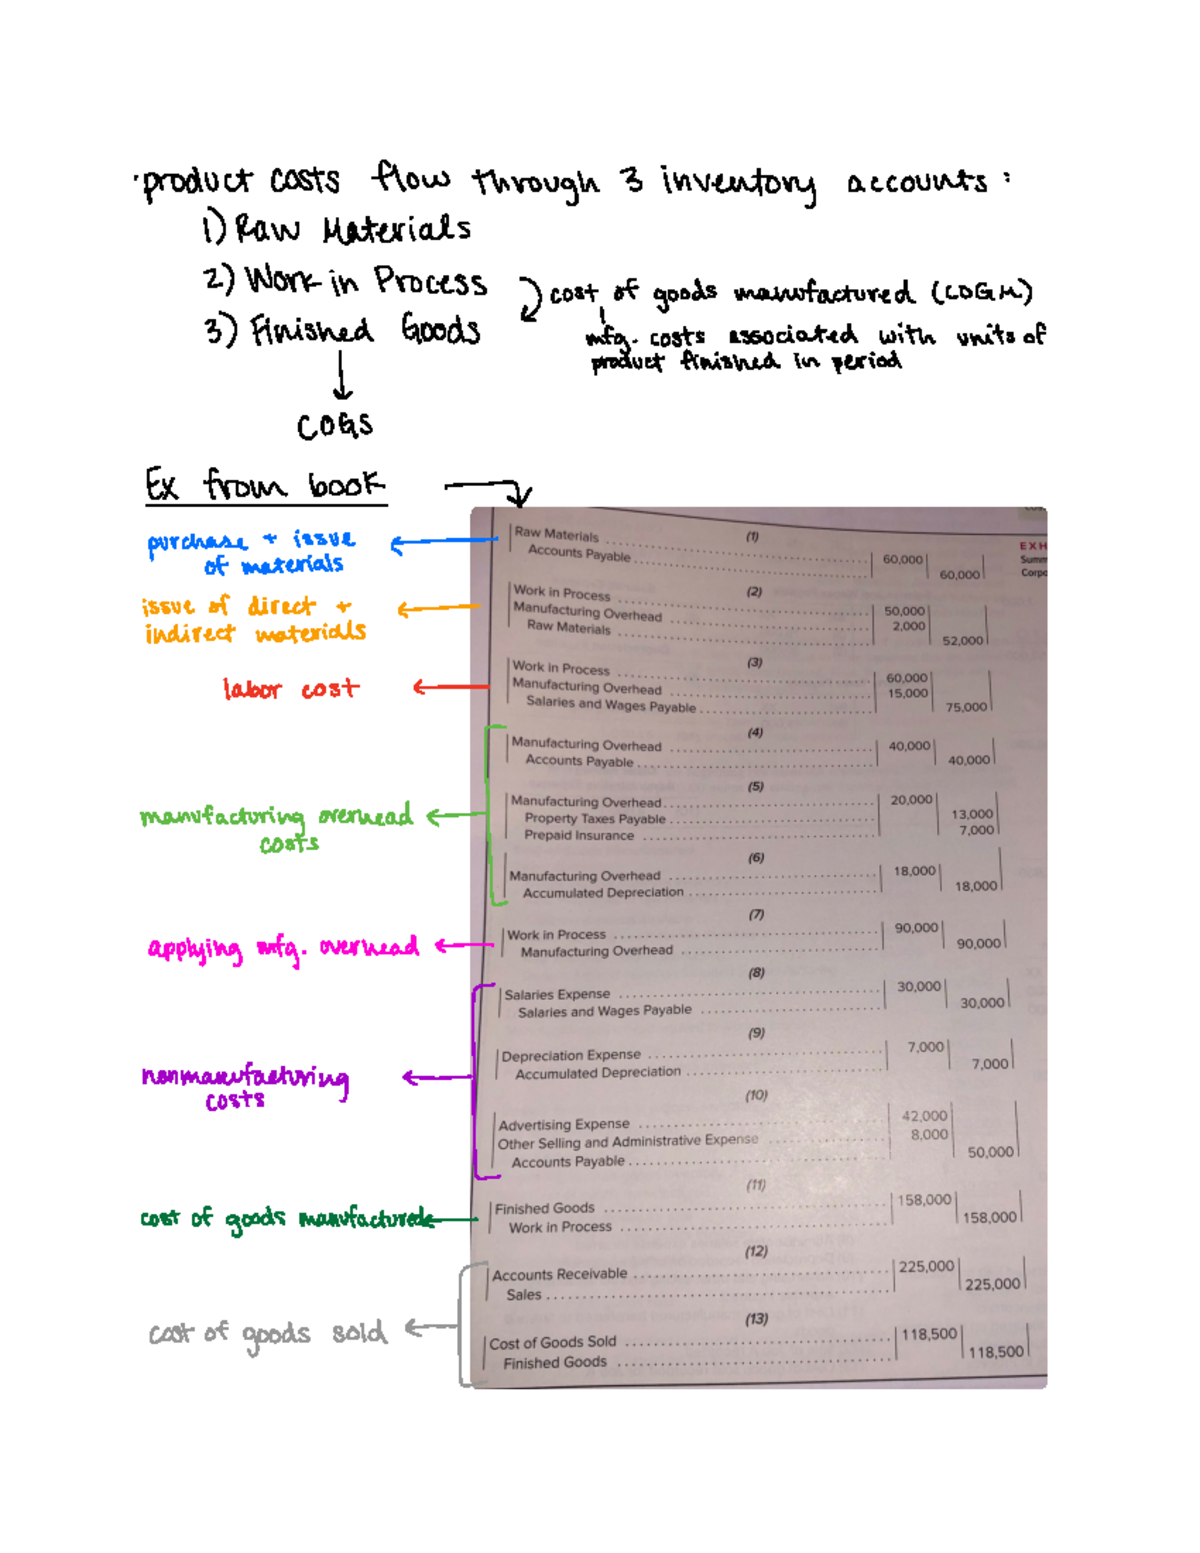 ·product costs flow through 3 inventory accounts:
1) Raw Materials
2) Work in Process
cost of goods manufactured (COGM)
3) Finished Goods
mfg. costs associated with units of
product finished in period
COGS
Ex from book
purchase + issue
of materials
issue of direct +
indirect materials
labor cost
manufacturing overhead
costs
applying mfg. overhead
nonmanufacturing
costs
cost of goods manufactured
cost of goods sold
(1)
Raw Materials 60,000
Accounts Payable 60,000
EXH
Summ
Corpo
(2)
Work in Process 50,000
Manufacturing Overhead 2,000
Raw Materials 52,000
(3)
Work in Process 60,000
Manufacturing Overhead 15,000
Salaries and Wages Payable 75,000
(4)
Manufacturing Overhead 40,000
Accounts Payable 40,000
(5)
Manufacturing Overhead 20,000
Property Taxes Payable 13,000
Prepaid Insurance 7,000
(6)
Manufacturing Overhead 18,000
Accumulated Depreciation 18,000
(7)
Work in Process 90,000
Manufacturing Overhead 90,000
(8)
Salaries Expense 30,000
Salaries and Wages Payable 30,000
(9)
Depreciation Expense 7,000
Accumulated Depreciation 7,000
(10)
Advertising Expense 42,000
Other Selling and Administrative Expense 8,000
Accounts Payable 50,000
(11)
Finished Goods 158,000
Work in Process 158,000
(12)
Accounts Receivable 225,000
Sales 225,000
(13)
Cost of Goods Sold 118,500
Finished Goods 118,500